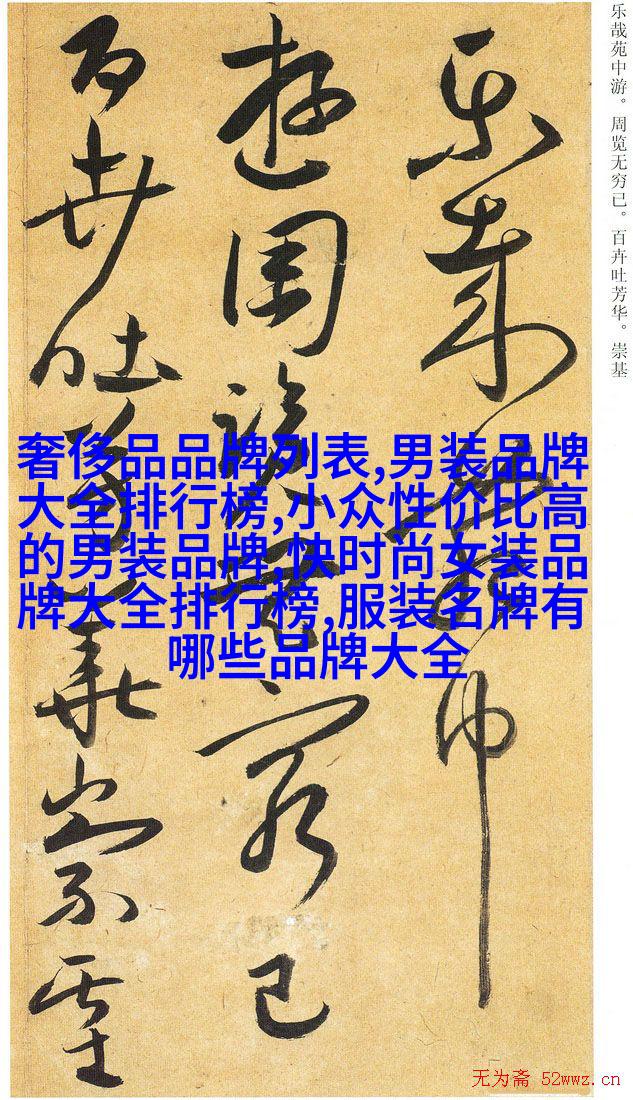 乐哉苑中游。周览无穷已。百卉吐芳华。崇基
乐哉苑中
游周览无穷已
百卉吐芳华崇基
奢侈品品牌列表,男装品牌
大全排行榜,小众性价比高
的男装品牌,快时尚女装品
牌大全排行榜,服装名牌有
哪些品牌大全
无为斋 52wwz.cn